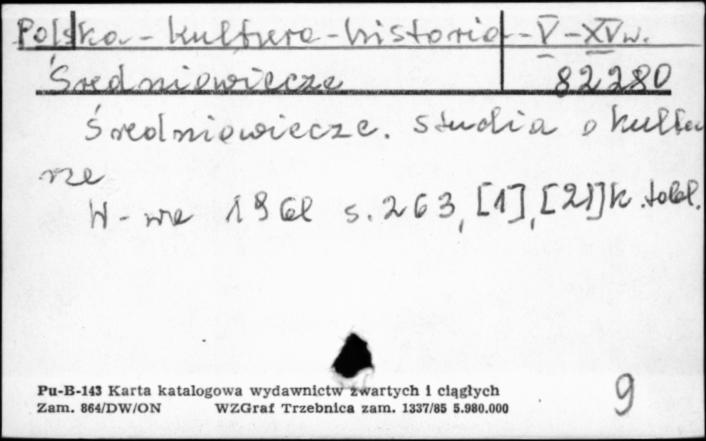 Polska - kultura - historia - V - XV w.
Średniowiecze 82280
Średniowiecze. Studia o kultu
rze
W-wa 1961 s. 263, [1], [21] k. tabl.
Pu-B-143 Karta katalogowa wydawnictw zwartych i ciągłych
Zam. 864/DW/ON WZGraf Trzebnica zam. 1337/85 5.980.000
9